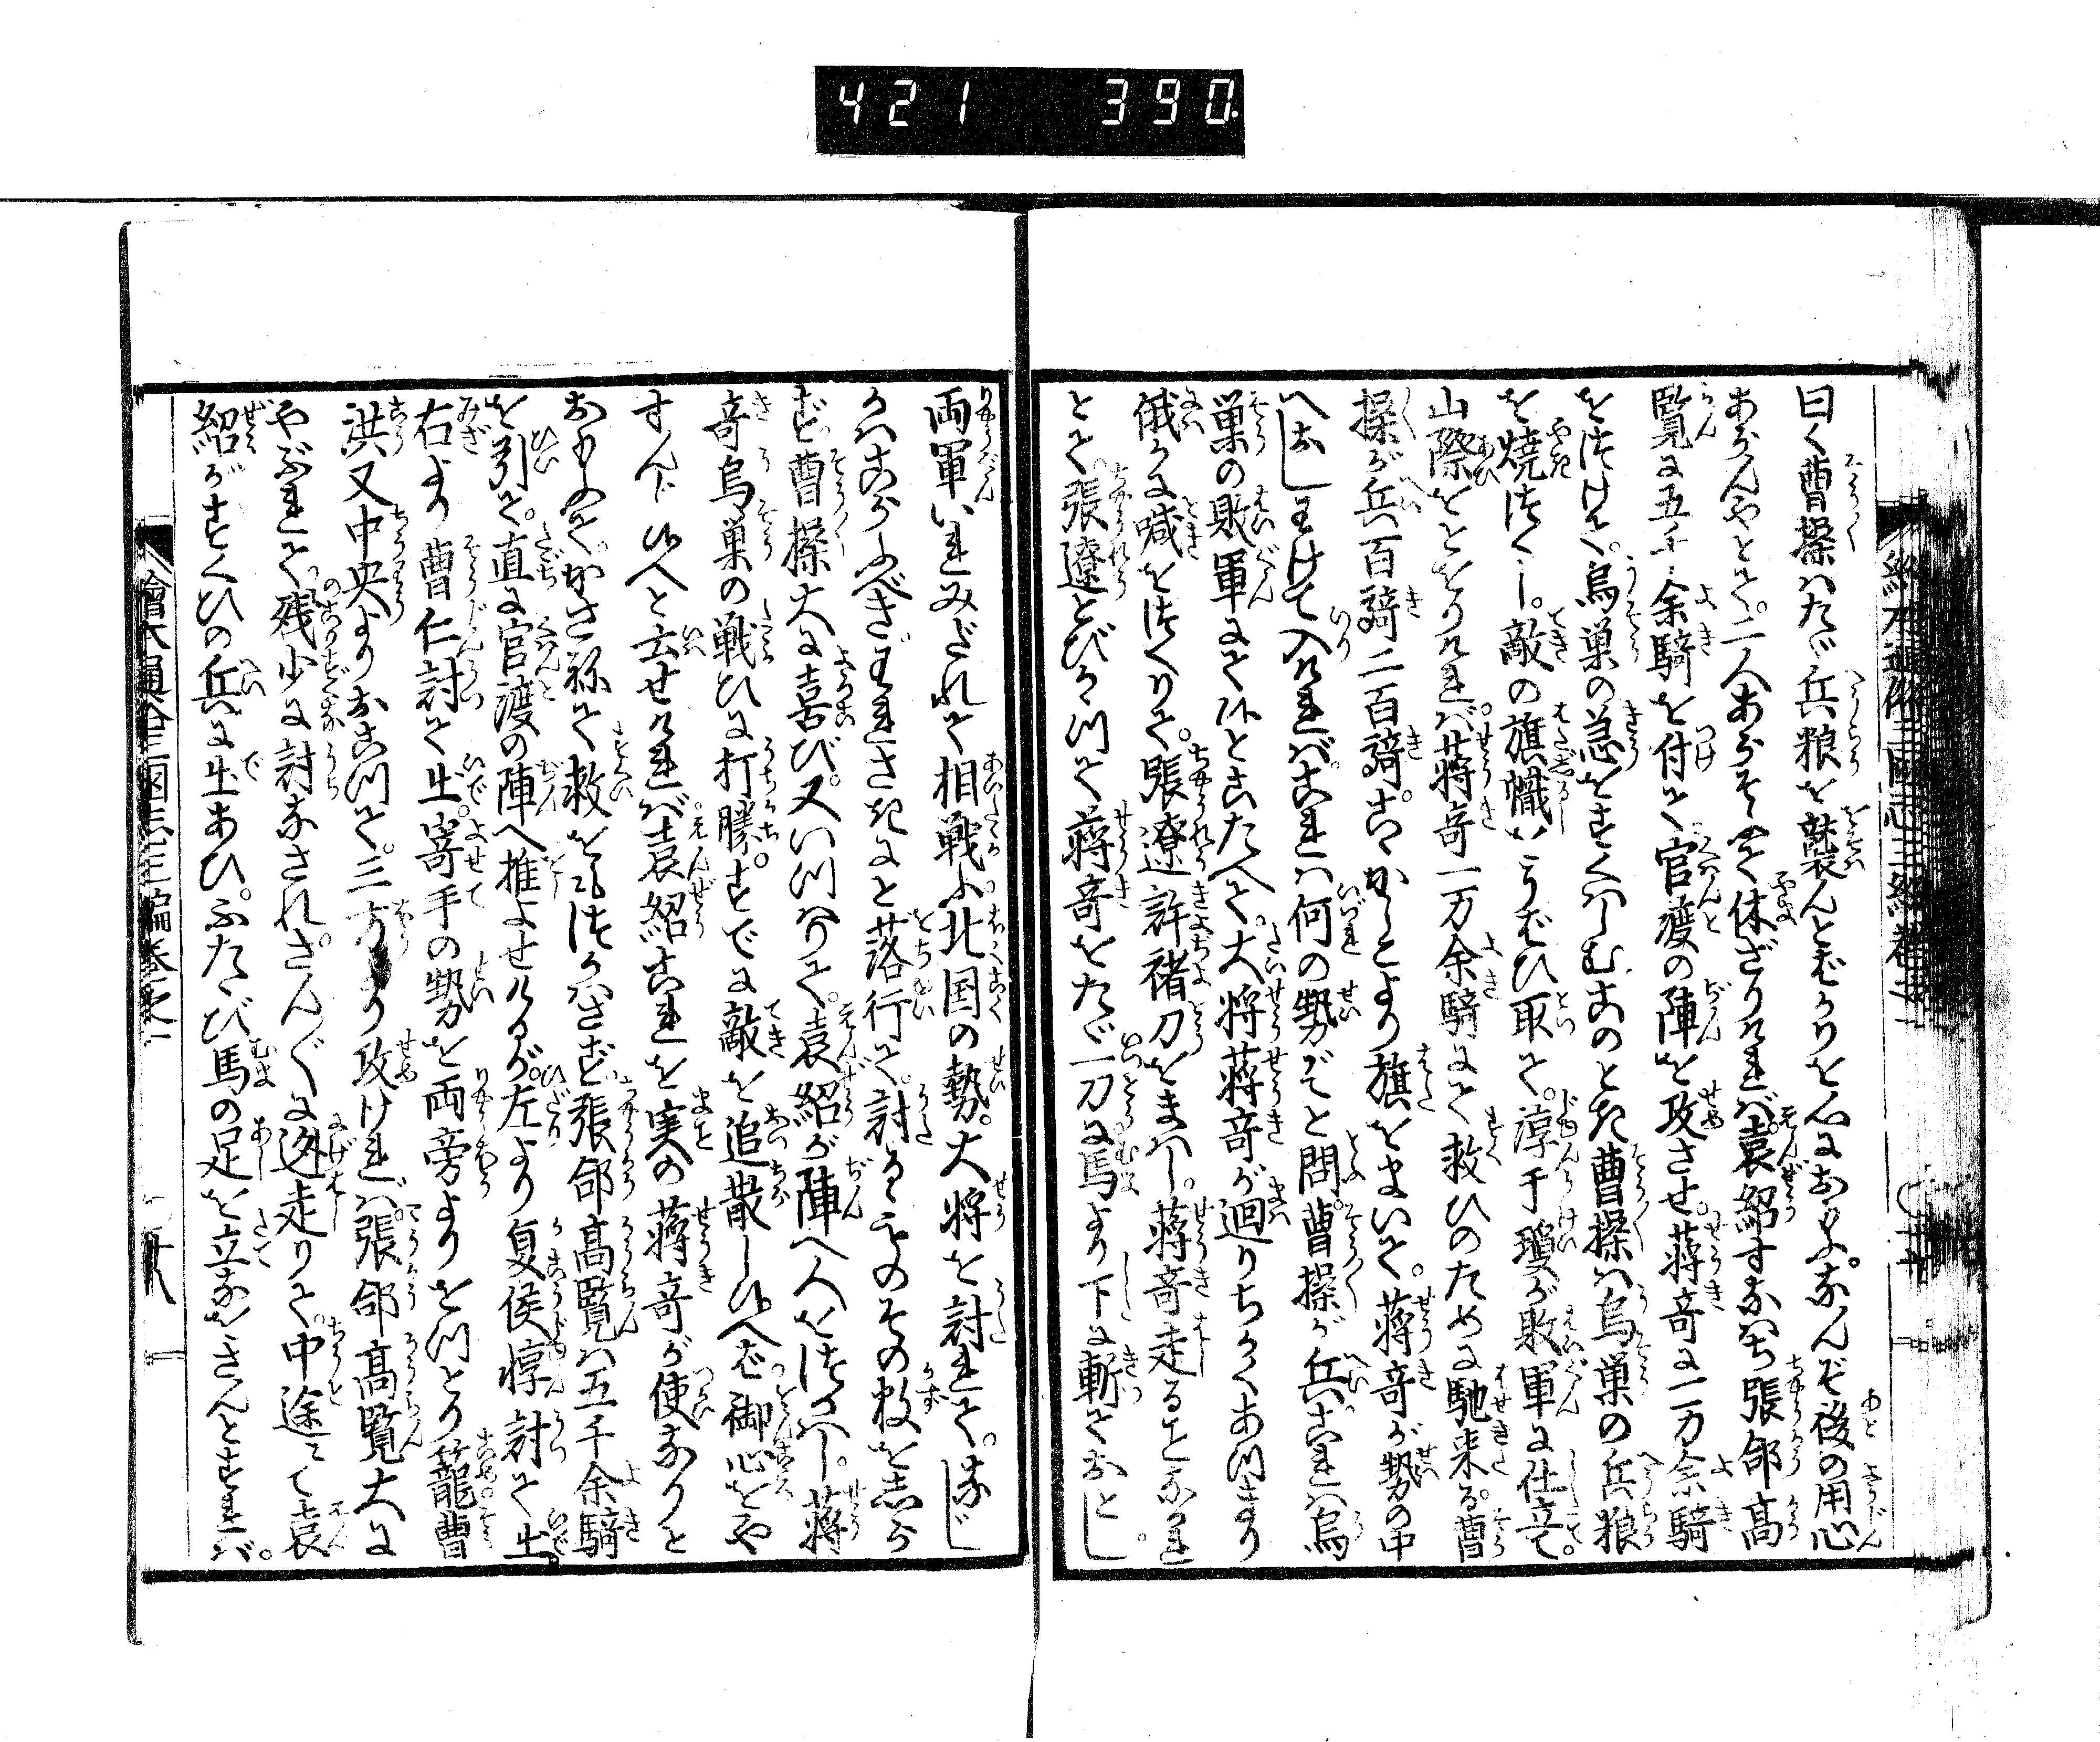 421 390
曰く曹操はたゞ兵粮を襲んとばかりを心におもふ。なんぞ後の用心
あらんやとて。二人あらそふて休ざりければ。袁紹すなはち張郃高
覧に五千余騎を付て官渡の陣を攻させ。蒋奇に一万余騎
をつけて。烏巣の急をすくはしむこのとき曹操は烏巣の兵粮
を焼つくし。敵の旗幟うばひ取て。淳于瓊が敗軍に仕立て。
山際をとをりければ。蒋奇一万余騎にて救ひのために馳来る。曹
操が兵百騎二百騎。こゝかしこより旗をまいて。蒋奇が勢の中
へおしまげて入ければ。これは何の勢がてと問。曹操が兵。これは烏
巣の敗軍にて候とこたへて。大将蒋奇が廻りちかくあつまり
俄に喊をつくりて。張遼許褚刀をまはし。蒋奇走るところ
とて。張遼とびかゝつて蒋奇をたゞ一刀に馬より下に斬ておとし。
両軍いりみだれて相戦ふ北国の勢。大将を討れて。なじ
かはこらふべきわれさきにと落行て。討るゝものその数をしら
ず曹操大に喜び。又いつはりて。袁紹が陣へ人をつかはし。蒋
奇烏巣の戦ひに打勝。すでに敵を追散し候へば御心をや
すんじ候へと云せければ。袁紹これを実の蒋奇が使なりと
おもふて。かさねて救をもつかはさず張郃高覧は五千余騎
を引て。直に官渡の陣へ推よせけるが。左より夏侯惇討て出
右より曹仁討て出。寄手の勢を両旁よりをつとり籠曹
洪又中央よりおこつて。三方より攻ければ。張郃高覧大に
やぶれて残少に討なされ。さんざんに逃走りて。中途にて袁
紹がすくひの兵に出あひ。ふたゝび馬の足を立なをさんとすれば。